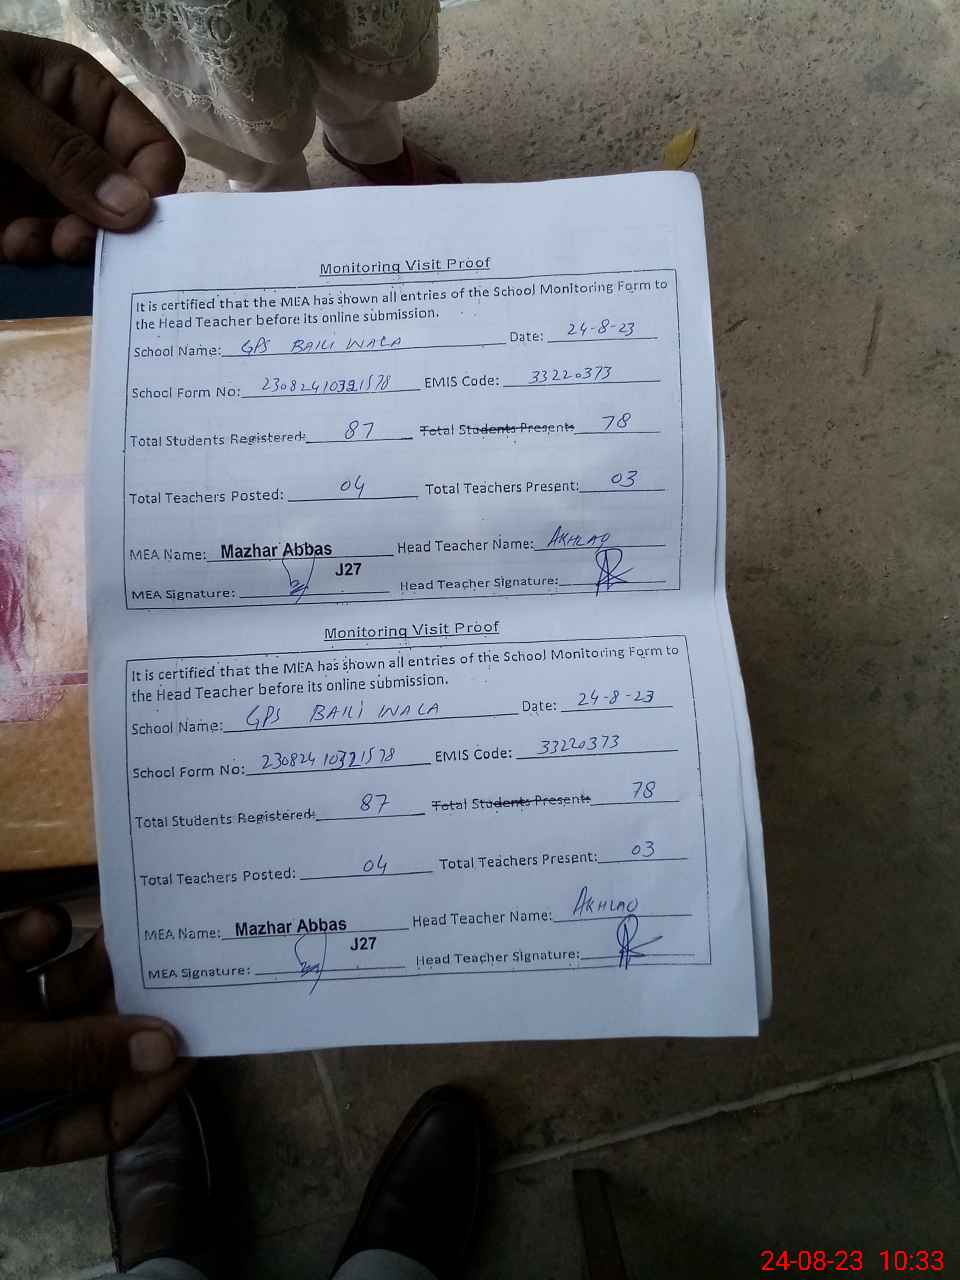 Monitoring Visit Proof
It is certified that the MEA has shown all entries of the School Monitoring Form to
the Head Teacher before its online submission.
School Name: GPS BAILI WALA Date: 24-8-23
School Form No: 23082410321578 EMIS Code: 33220373
Total Students Registered: 87 Total Students Present 78
Total Teachers Posted: 04 Total Teachers Present: 03
MEA Name: Mazhar Abbas Head Teacher Name: AKHLAQ
J27
MEA Signature: Head Teacher Signature:
Monitoring Visit Proof
It is certified that the MEA has shown all entries of the School Monitoring Form to
the Head Teacher before its online submission.
School Name: GPS BAILI WALA Date: 24-8-23
School Form No: 23082410321578 EMIS Code: 33220373
Total Students Registered: 87 Total Students Present 78
Total Teachers Posted: 04 Total Teachers Present: 03
MEA Name: Mazhar Abbas Head Teacher Name: AKHLAQ
J27
MEA Signature: Head Teacher Signature:
24-08-23 10:33